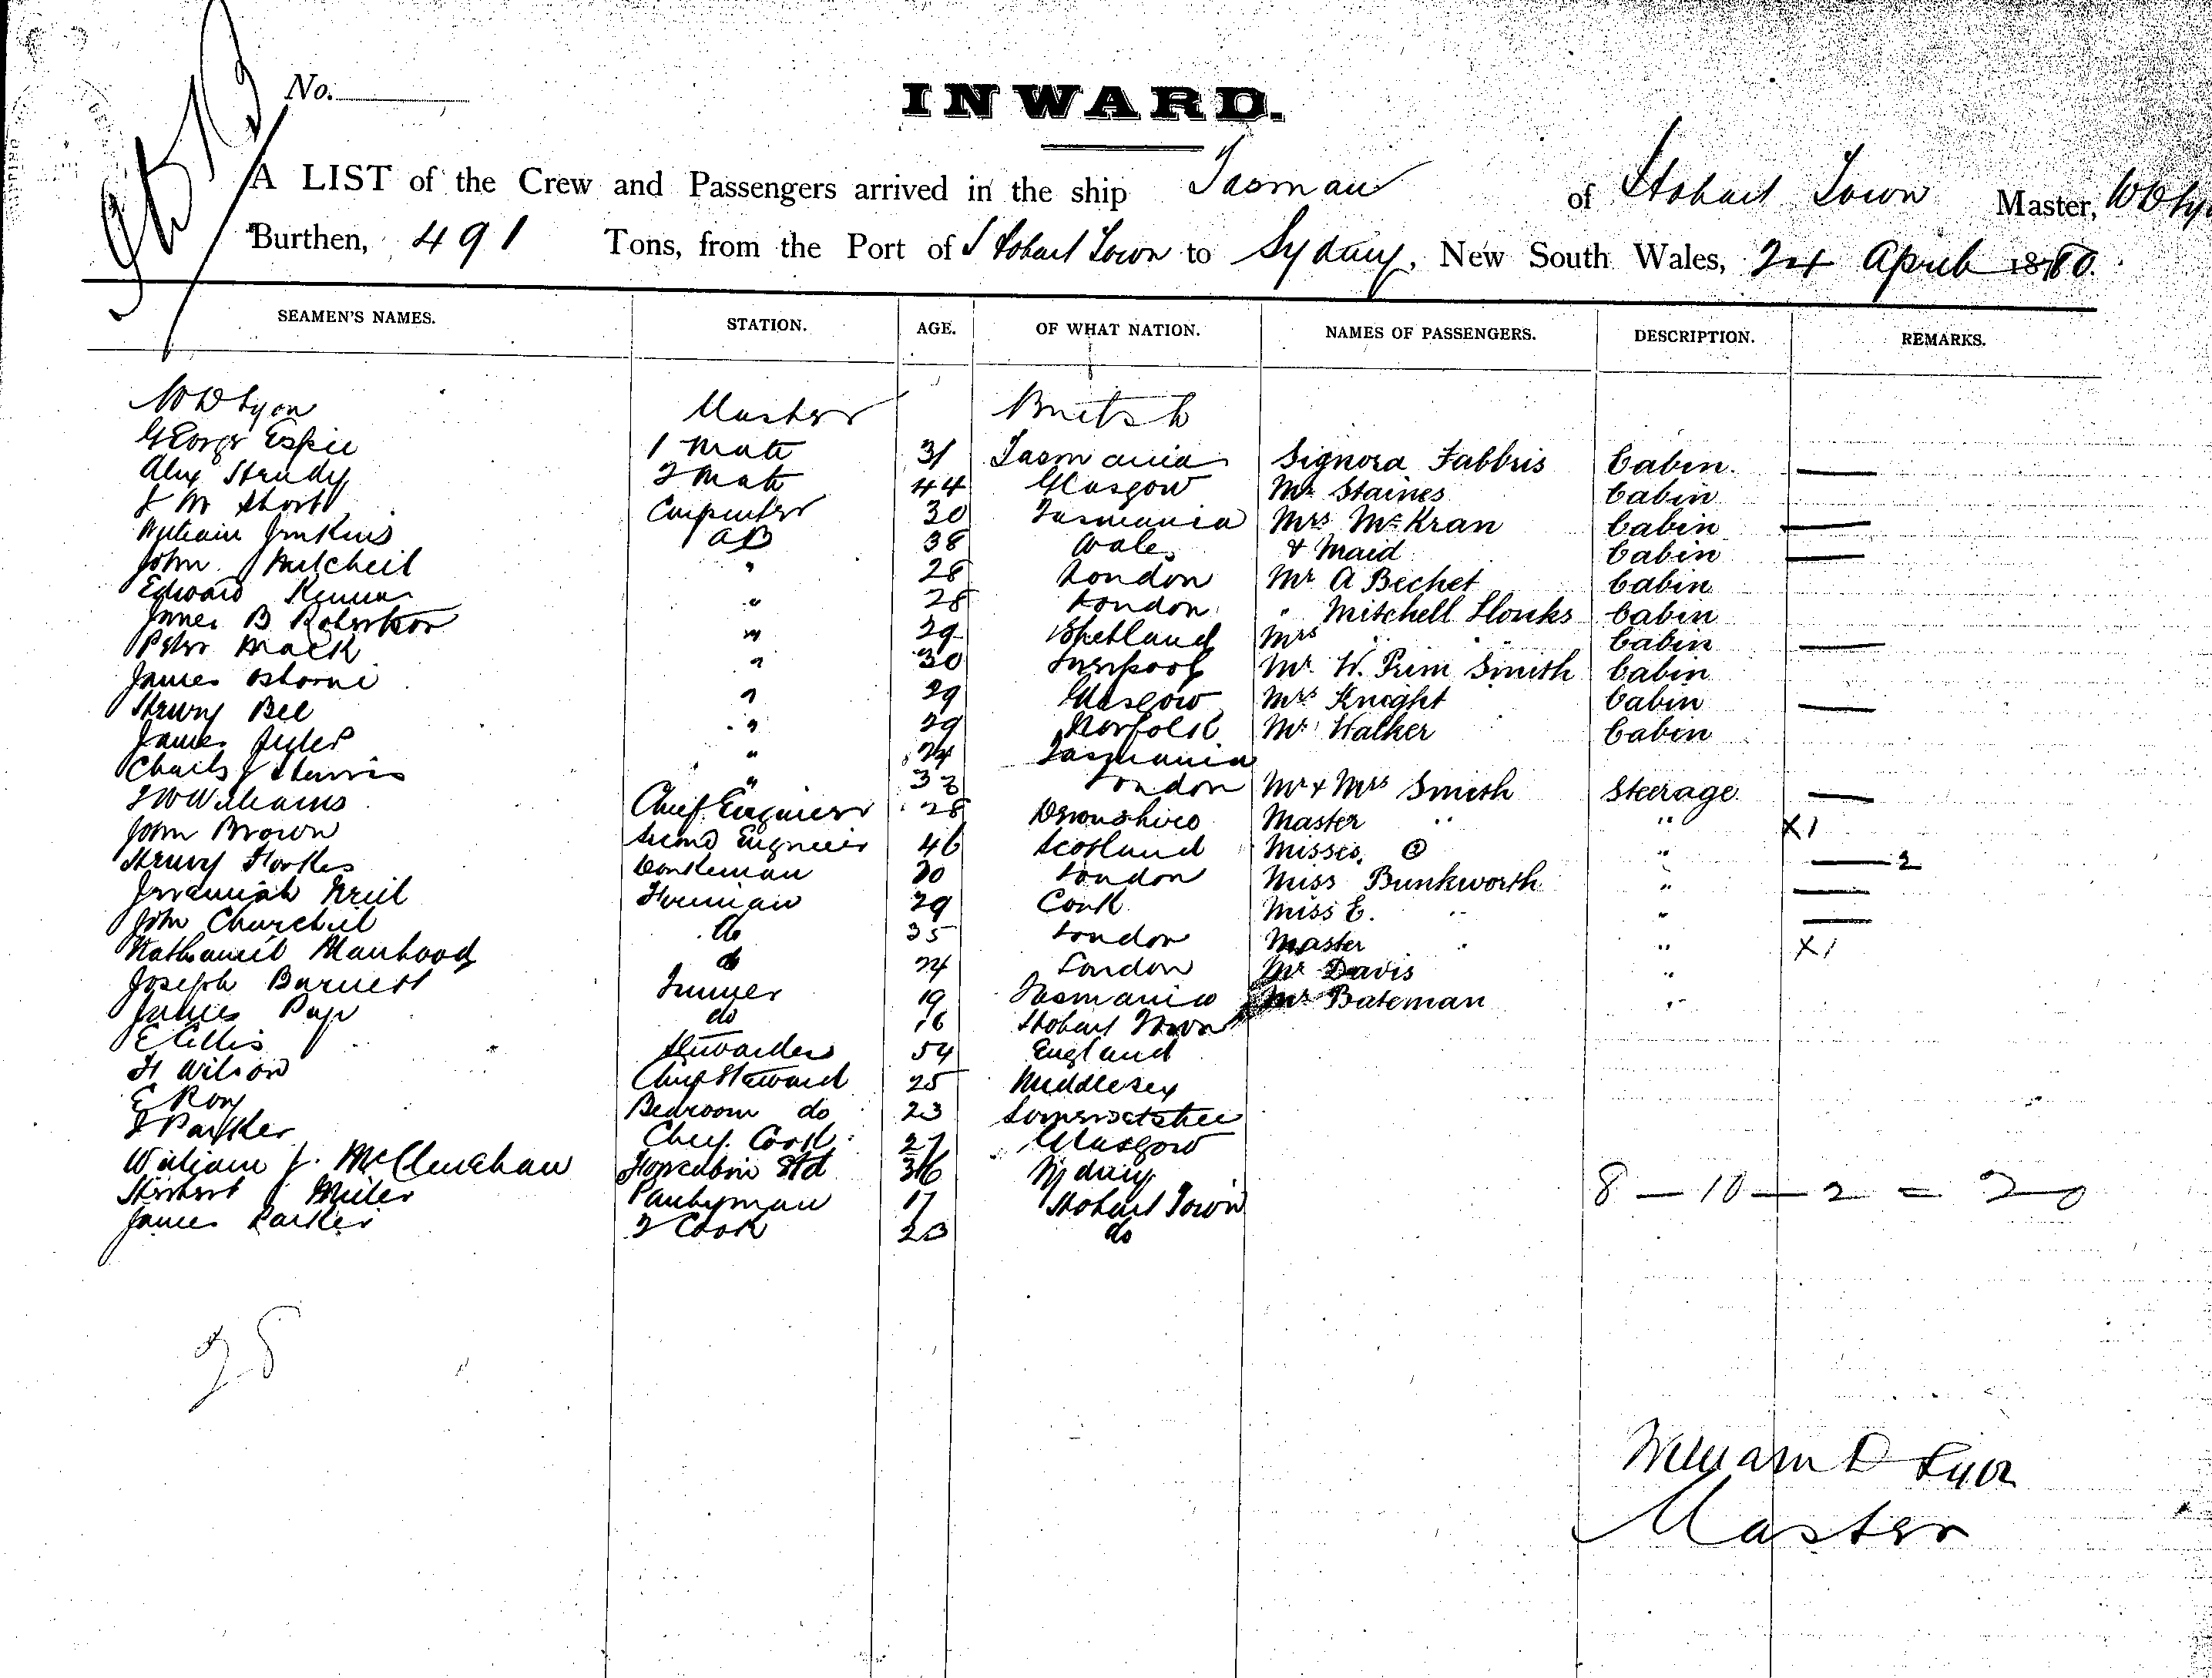 No.
INWARD.
A LIST of the Crew and Passengers arrived in the ship Tasman of Hobart Town Master, W D Lyon
Burthen, 491 Tons, from the Port of Hobart Town to Sydney, New South Wales, 24 April 1880.
SEAMEN'S NAMES. STATION. AGE. OF WHAT NATION. NAMES OF PASSENGERS. DESCRIPTION. REMARKS.
W D Lyon Master British
George Espie 1 Mate 31 Tasmania Signora Fabbris Cabin. —
Alex 2 Mate 44 Glasgow Mr Staines Cabin
Short Carpenter 30 Tasmania Mrs McKran Cabin —
William Jenkins AB 38 Wales & Maid Cabin —
John Mitchell " 28 London Mr A Bechet Cabin
Edward " 28 London " Mitchell Cabin
James B Robertson " 29 Shetland Mrs " " Cabin —
Peter Mack " 30 Liverpool Mr. W. Prim Smith Cabin
James Osborne " 29 Glasgow Mrs Knight Cabin —
Henry Bell " 29 Norfolk Mr Walker Cabin
James " 24 Tasmania
Charles Harris " London Mr & Mrs Smith Steerage —
Williams Chief Engineer 28 Devonshire Master " " X1
John Brown Second Engineer 46 Scotland Misses " — 2
Henry Donkeman 30 London Miss Bunkworth " —
Jeremiah Fireman 29 Cork Miss E. " " —
John Churchill do 35 London Master " " X1
Nathaniel Manhood do 24 London Mr Davis "
Joseph Burnett Trimer 19 Tasmania Mr Bateman "
James do 16 Hobart Town
E Ellis Stewardess 54 England
H Wilson Chief Steward 25 Middlesex
E Roy Bedroom do 23 Somersetshire
Parker Chief Cook 27 Glasgow
William J. McClenehan Forecabin Std 36 Sydney
Herbert Miller Pantryman 17 Hobart Town
James Parker 2 Cook 23 do
8 — 10 — 2 = 20
28
William D Lyon
Master